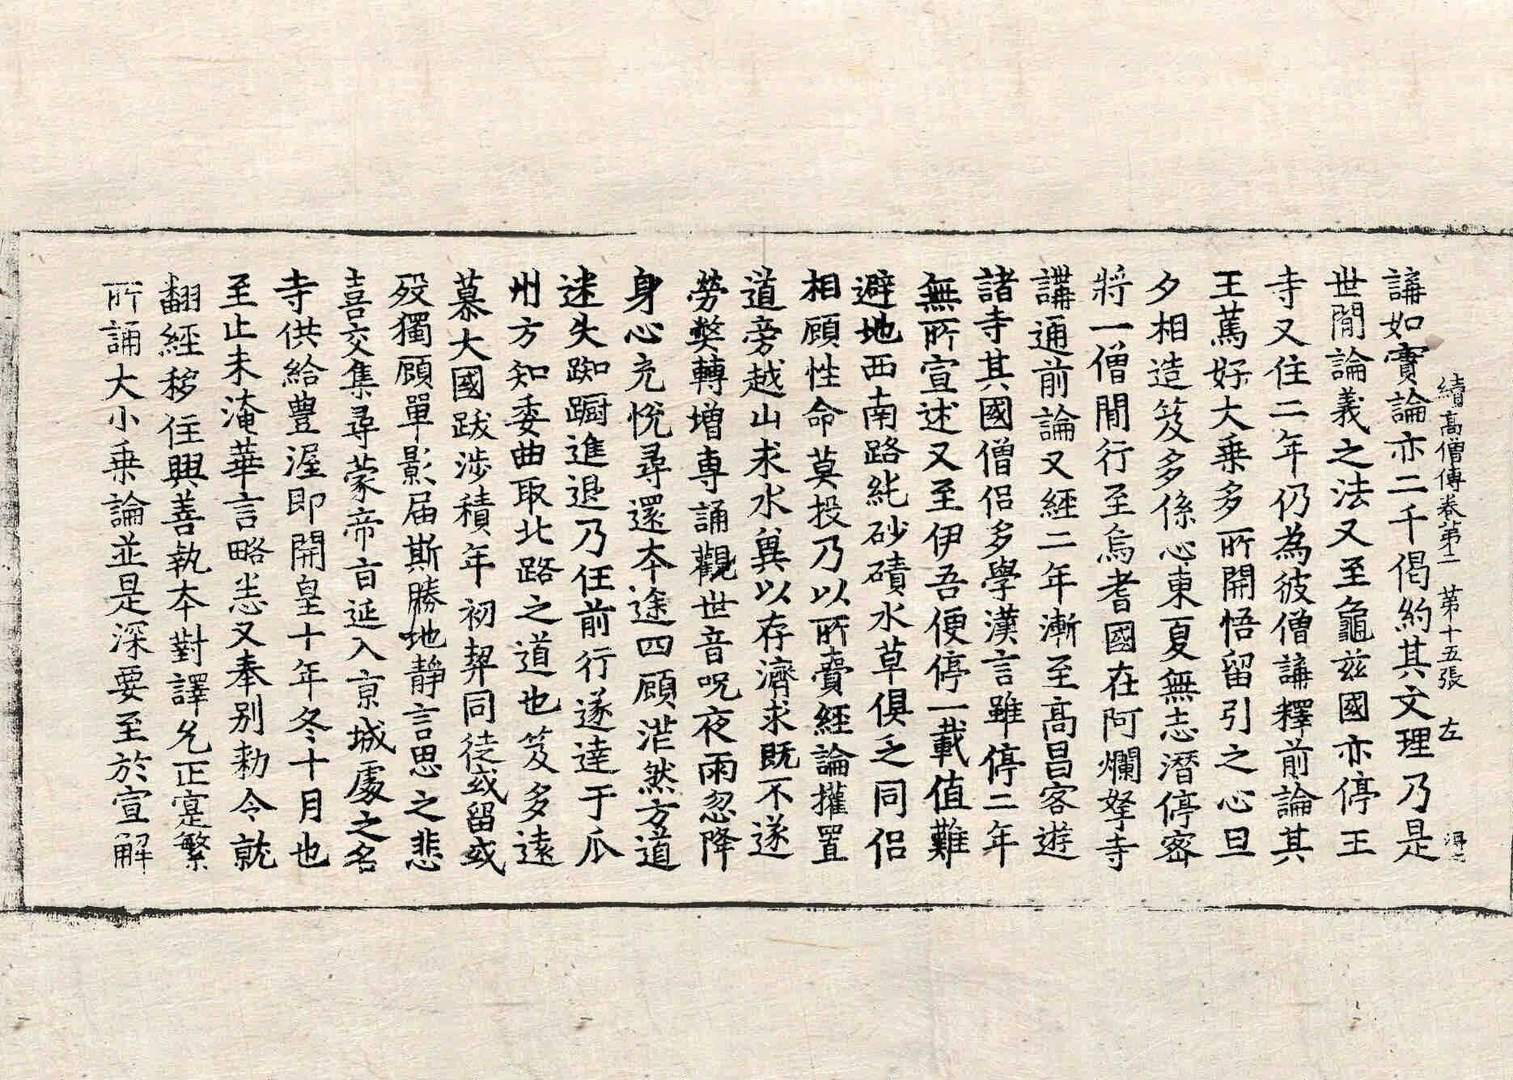 續高僧傳卷第二 第十五張 左
講如實論亦二千偈約其文理乃是
世間論義之法又至龜茲國亦停王
寺又住二年仍為彼僧講釋前論其
王篤好大乗多所開悟留引之心旦
夕相造笈多係心東夏無志潛停密
將一僧間行至烏耆國在阿爛拏寺
講通前論又經二年漸至高昌客遊
諸寺其國僧侶多學漢言雖停二年
無所宣述又至伊吾便停一載值難
避地西南路純砂磧水草俱乏同侶
相顧性命莫投乃以所賷經論權置
道旁越山求水冀以存濟求既不遂
勞弊轉增専誦觀世音呪夜雨忽降
身心充恱尋還本途四顧茫然方道
迷失踟蹰進退乃任前行遂逹于瓜
州方知委曲取北路之道也笈多遠
慕大國跋涉積年初契同徒或留或
歿獨顧單影届斯勝地靜言思之悲
喜交集尋蒙帝㫖延入京城處之名
寺供給豊渥即開皇十年冬十月也
至止未淹華言略悉又奉别勑令就
翻經移住興善執本對譯允正寔繁
所誦大小乗論並是深要至於宣解